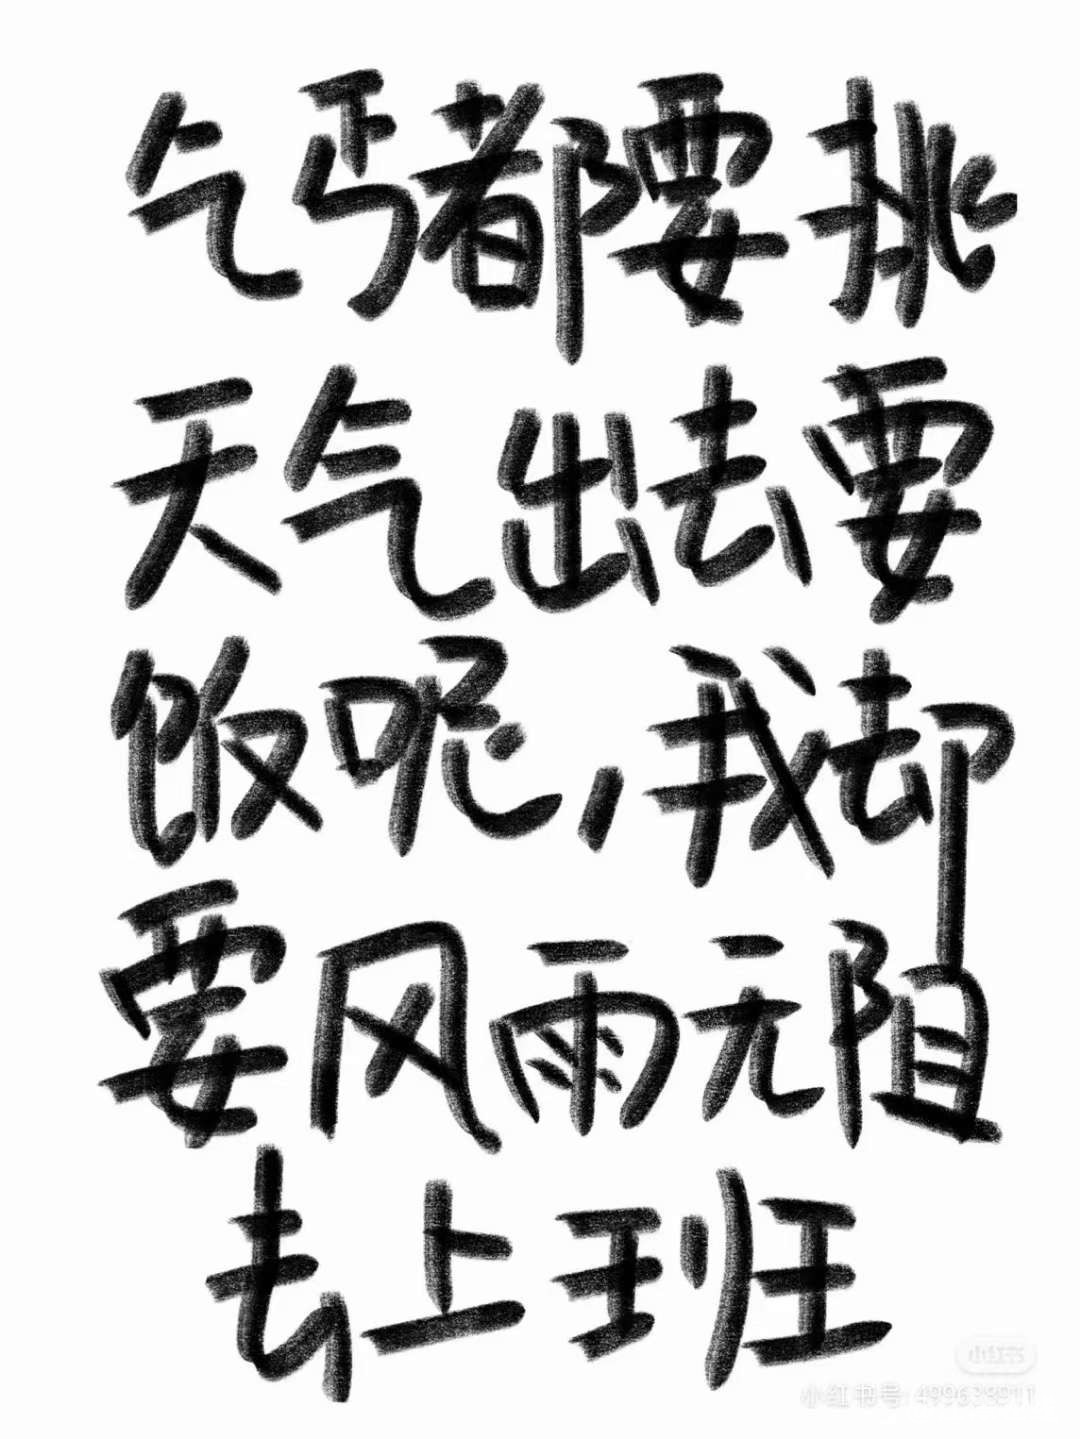 乞丐都要挑
天气出去要
饭呢,我却
要风雨无阻
去上班
小红书
小红书号:499638911